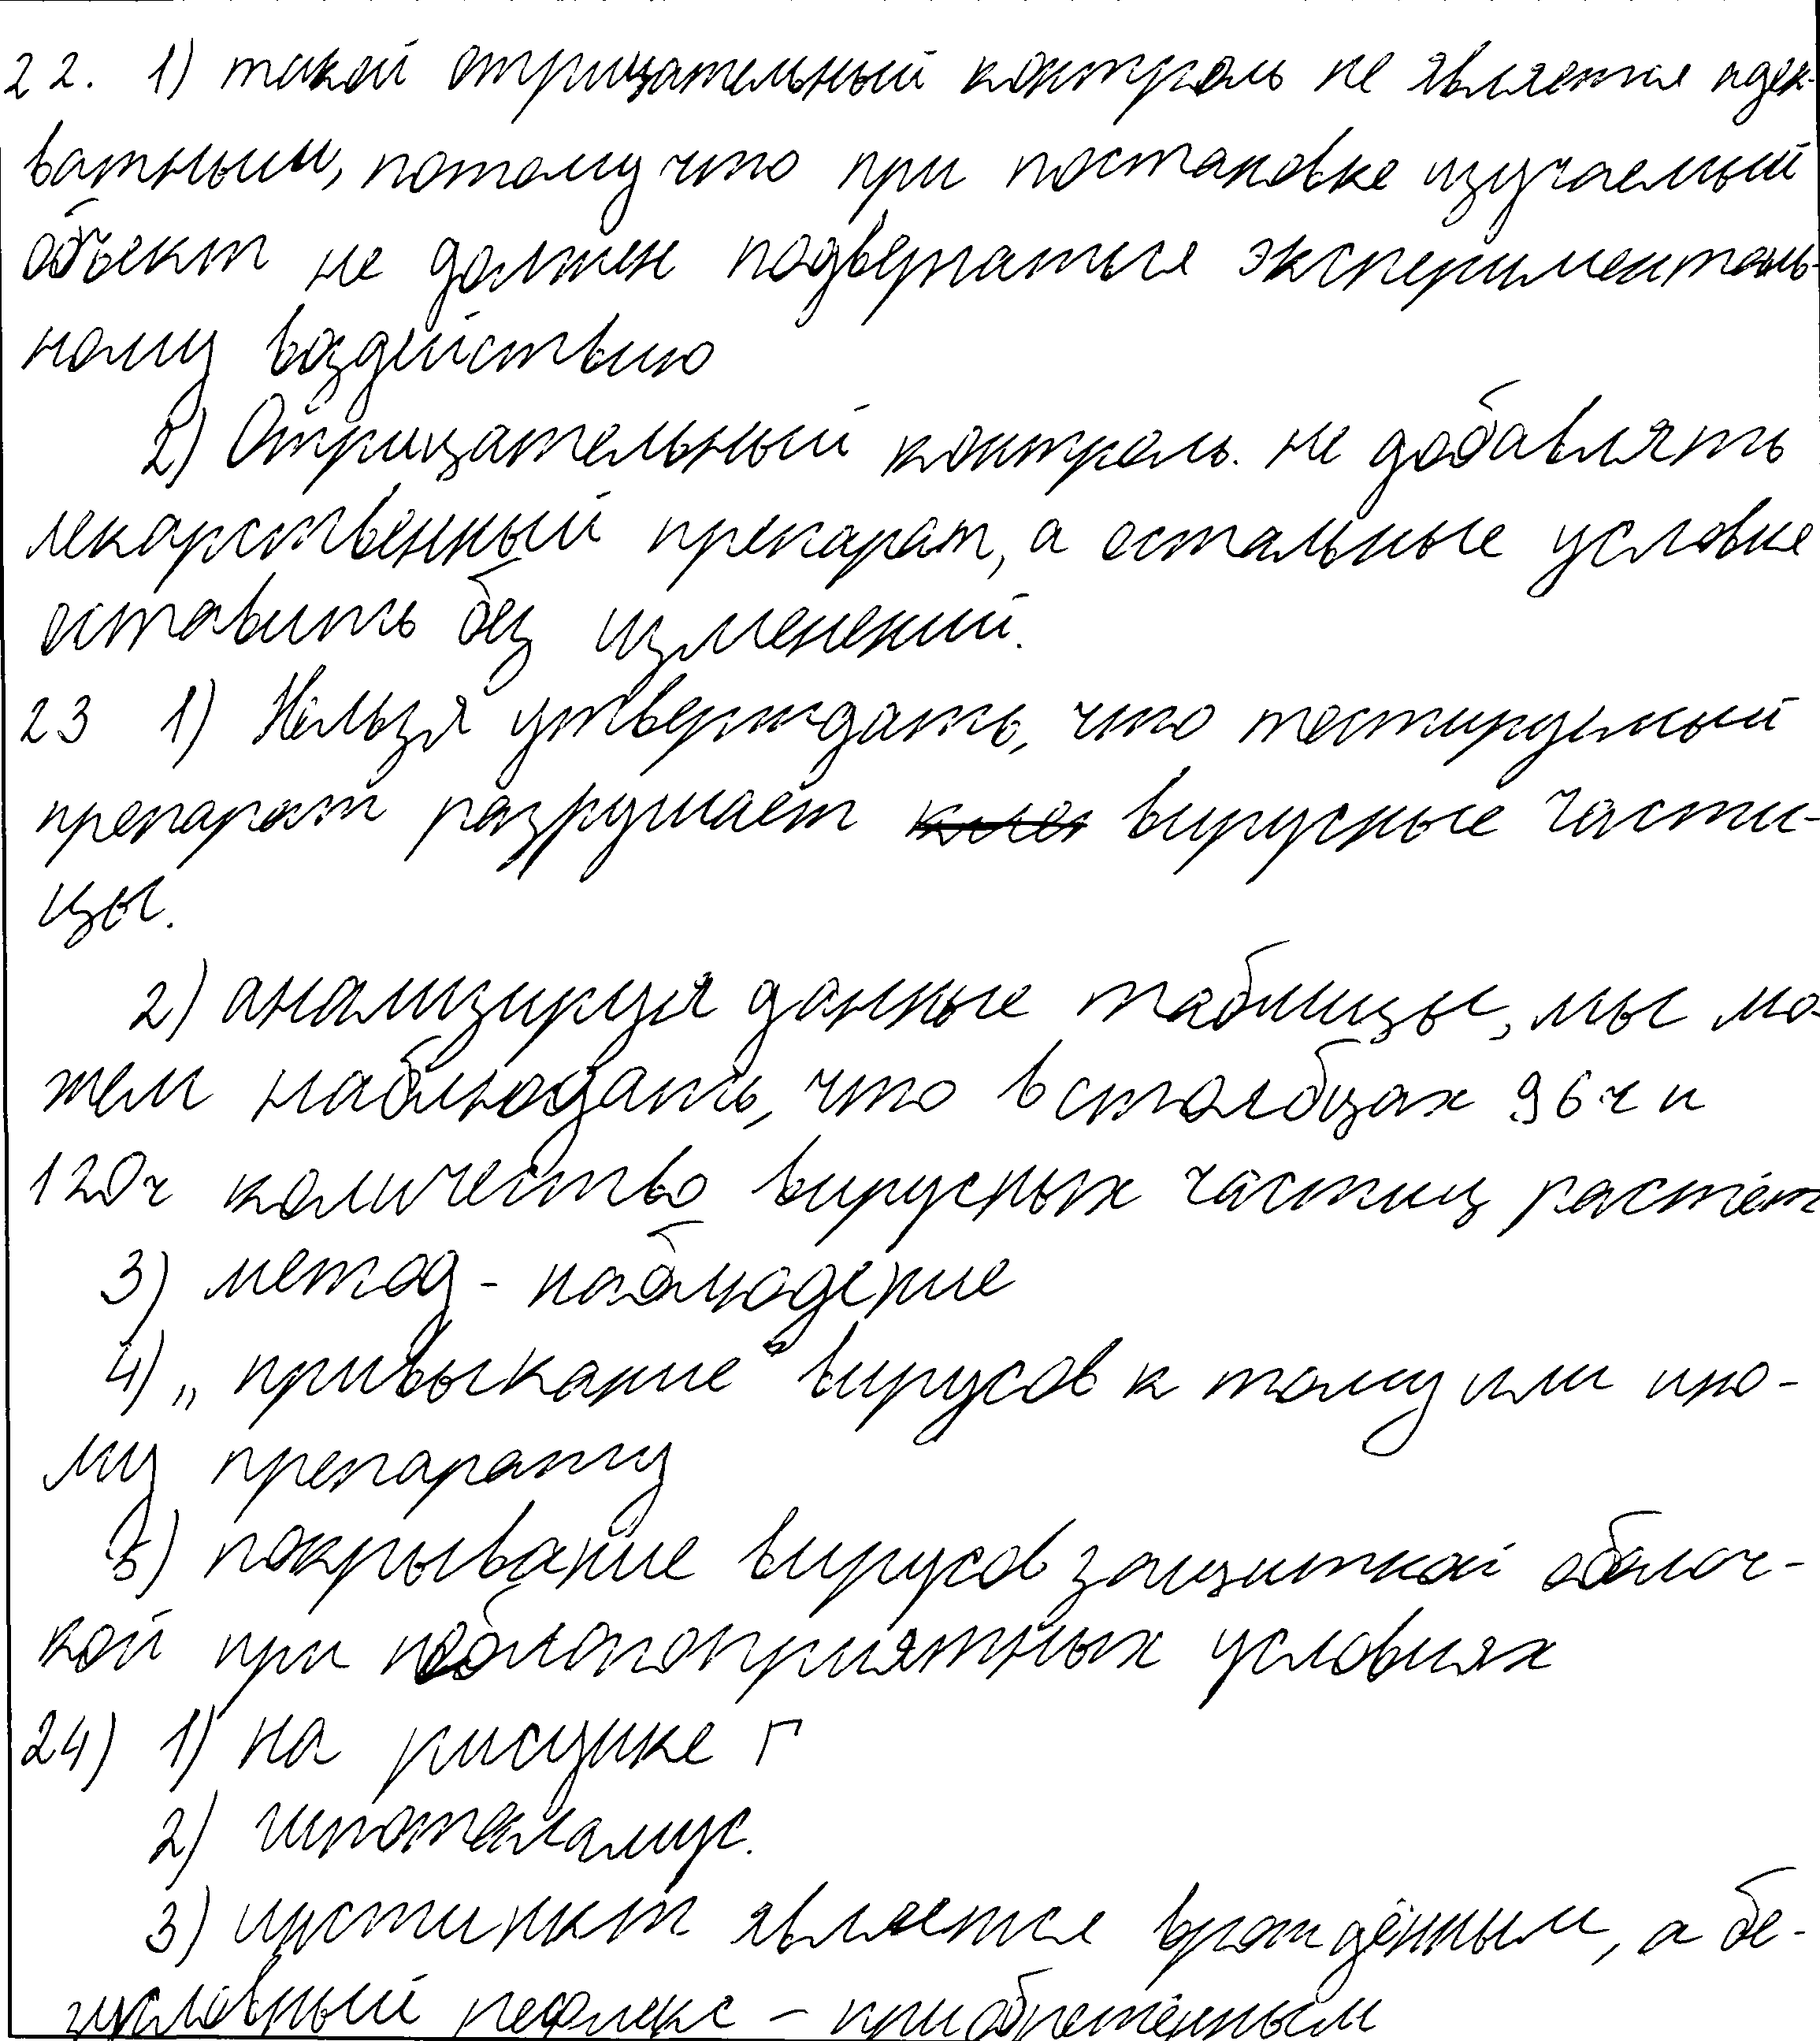 22. 1) такой отрицательный контроль не является адек-
ватным, потому что при постановке изучаемый
объект не должен подвергаться эксперименталь-
ному воздействию
2) Отрицательный контроль. не добавлять
лекарственный препарат, а остальные условие
оставить без изменений.
23 1) Нельзя утверждать, что тестируемый
препарат разрушает вирусные части-
цы.
2) анализируя данные таблицы, мы мо-
жем наблюдать, что в столбцах 96 ч и
120ч количество вирусных частиц растёт
3) метод - наблюдение
4) „привыкание" вирусов к тому или ино-
му препарату
5) покрывание вирусов защитной оболоч-
кой при неблагоприятных условиях
24) 1) на рисунке Г
2) гипоталамус.
3) инстинкт является врождённым, а бе-
зусловный рефлекс - приобретённым